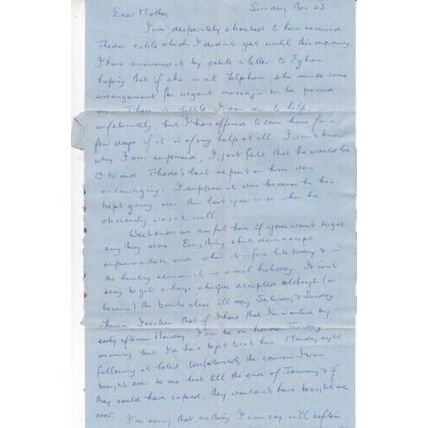 Sunday Nov 23
Dear Mother,
I am desperately shocked to have received
cable which I didn't get until this morning.
I have answered by cable & letter to Egham
hoping that if she is at she made some
arrangement for urgent messages to be passed
on. There is little I can do to help,
unfortunately, but I have offered to come home for a
few days if it is of any help at all. I don't know
why I am surprised, I just felt that he would be
O.K. and last report on him was
encouraging. I suppose it was because he has
kept going over this last year or so when he
obviously wasn't well.
Weekends are awful here if you want to get
anything done. Everything shuts down except
supermarkets and when it is fine like today & in
the hunting season it is a real holiday. It isn't
easy to get a large cheque accepted although (or
because) the banks close all day Saturday & Sunday.
However, I reckon that if I hear that I'm wanted by
early afternoon Monday I can be in London Tuesday
morning but I'd have to get back here Monday night
following at latest. Unfortunately the I was
brought over to do last till the end of January & if
they could have coped, they wouldn't have brought me
over.
I'm sorry that nothing I can say will soften